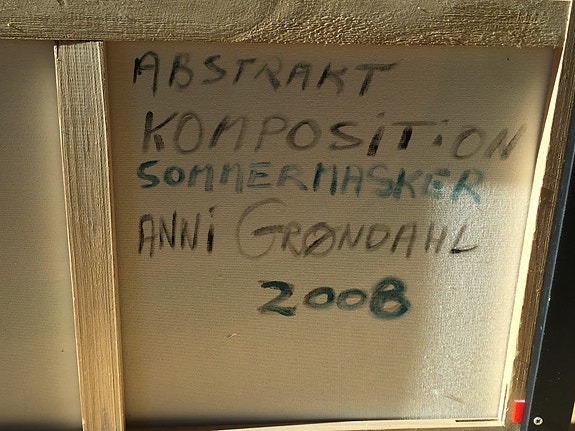 ABSTRAKT
KOMPOSiTiON
SOMMERMASKER
ANNi GRØNDAHL
2008